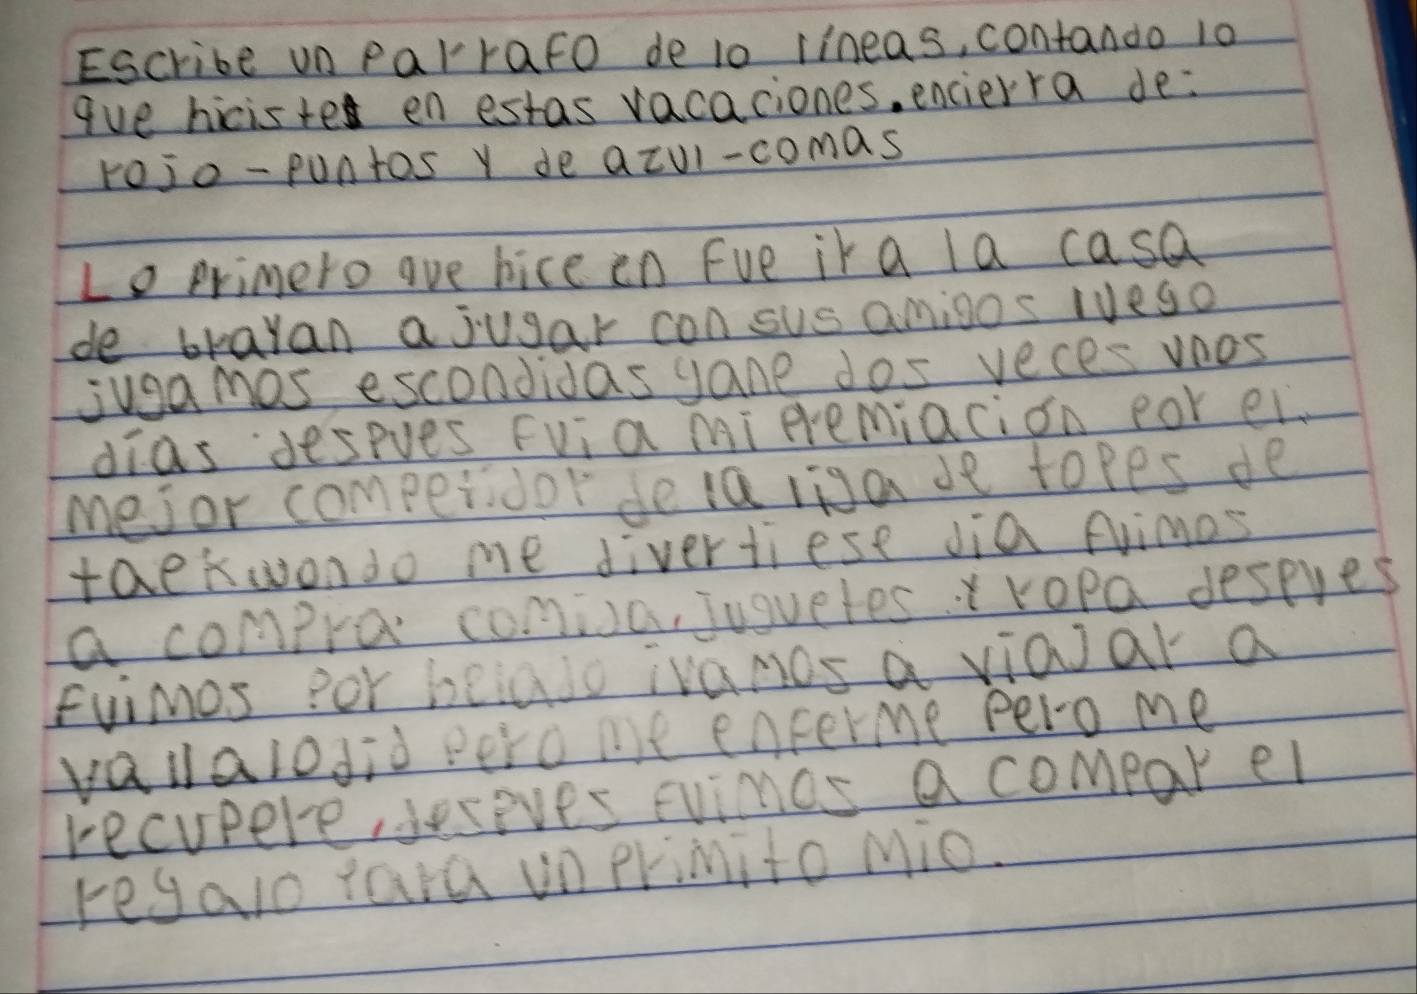 Escribe un parrafo de 10 líneas, contando lo
que hicistes en estas vacaciones. encierra de:
rojo - puntos y de azul - comas
Lo primero que hice en fue ir a la casa
de brayan a jugar con sus amigos luego
jugamos escondidas gane dos veces unos
días despues fui a mi premiación por el
mejor competidor de la liga de topes de
taekwondo me diverti ese dia fuimos
a compra comida, juguetes y ropa despues
fuimos por helado ivamos a viajar a
vallalodid pero me enferme pero me
recupere, despues fuimos a compar el
regalo para un primito mio.